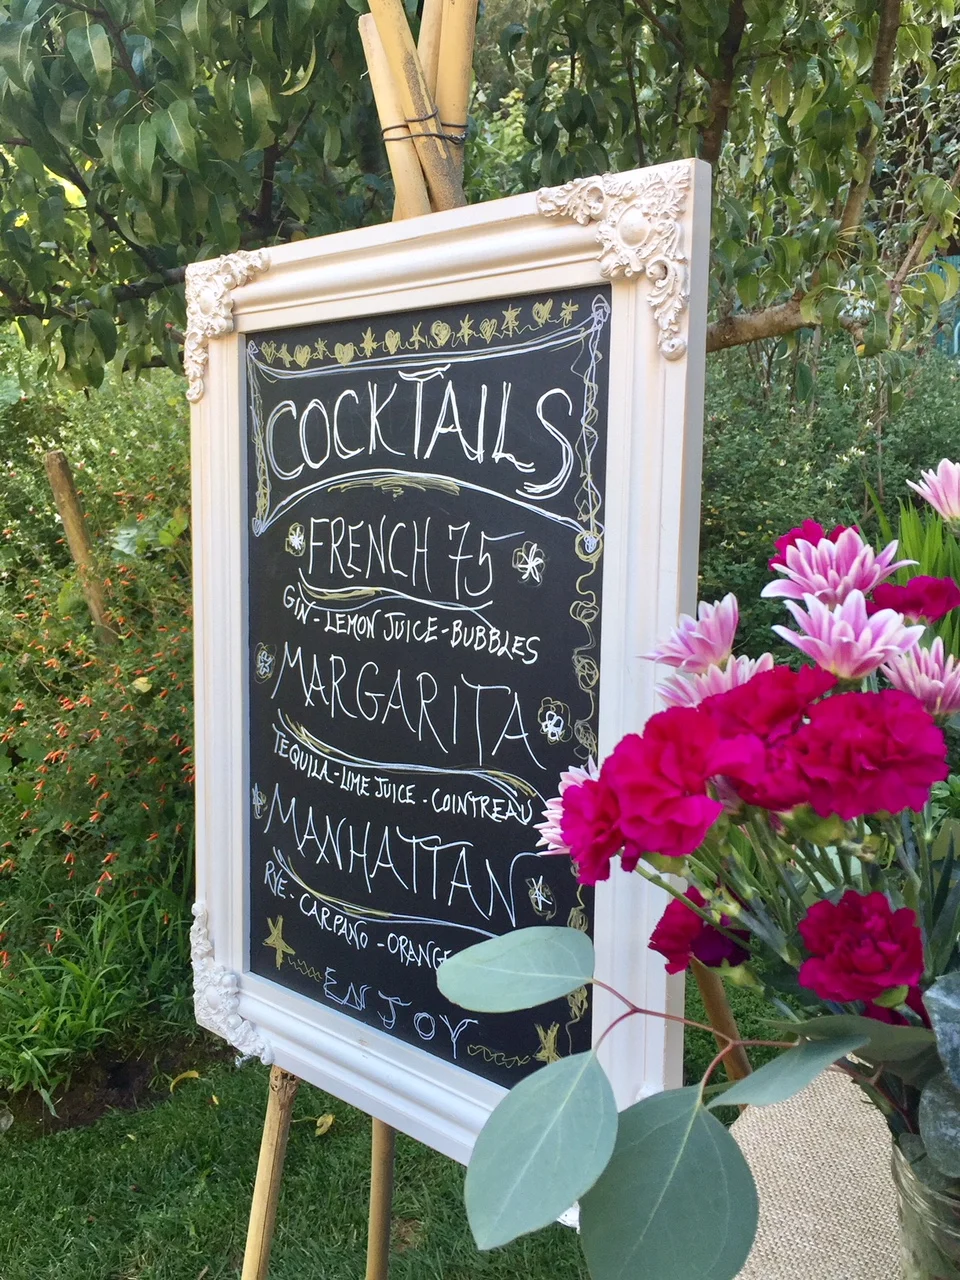 COCKTAILS
FRENCH 75
GIN - LEMON JUICE - BUBBLES
MARGARITA
TEQUILA - LIME JUICE - COINTREAU
MANHATTAN
RYE - CARPANO - ORANGE
ENJOY